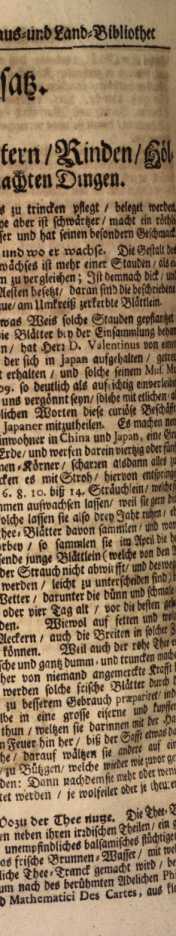 aus-und Land-Bibliothec
satz.
tern / Rinden / Höl-
achten Dingen.
s zu trincken pflegt / beleget werden
he aber ist schwärtzer / macht ein röthl
ser und hat seinen besondern Geschmack
und wo er wachse. Die Gestalt des
wächses ist mehr einer Stauden / als e
m zu vergleichen; Ist demnach dick / und
Aesten besetzt / daran sind die beschriebene
aue / am Umkreiß zerkerbte Blättlein.
was Weis solche Stauden gepflantzet
ie Blätter bey der Einsammlung behan
n / hat Herr D. Valentinus von eine
der sich in Japan aufgehalten /
t erhalten / und solche seinem Mus. Mu
09. so deutlich als aufrichtig einverleibt
uns vergönnt seyn / solche mit etlichen
lichen Worten diese curiöse Beschäff
Japaner mitzutheilen. Es machen nem
inwohner in China und Japan, eine Gru
Erde / und werfen darein viertzig oder fünf
men-Körner / scharren alsdann alles zu
cken es mit Stroh / hiervon entspringen
6. 8. 10. biß 14. Sträuchlein / welche
men aufwachsen lassen / weil sie gern
olche lassen sie also drey Jahr ruhen /
hee-Blätter davon sammlen / und wann
orbey / so sammlen sie im April die
sende junge Blättlein (welche von den
der Strauch nicht abwirfft / und deswegen
werden / leicht zu unterscheiden sind)
Wetter / darunter die dünn und schmale
oder vier Tag alt / vor die besten
den. Wiewol auf fetten und wol
Aeckern / auch die Breiten in solcher
können. Weil auch der rohe Thee
sche und gantz dumm- und truncken mache
her von niemand angemerckte Krafft
werden solche frische Blätter durch
zu besserem Gebrauch præpariret / und
lbe in eine grosse eiserne und kupfferne
thun / welzen sie darinnen mit der Hand
n Feuer hin her / biß der Safft etwas dar
he / darauf wältzen sie andere auf ein
zu Bützgen / welche wieder wie zuvor ge
den: Dann nachdem sie mehr oder weni
tet werden / je wolfeiler oder je theurer
Wozu der Thee nutze. Die Thee-B
en neben ihren irdischen Theilen / ein
unempfindliches balsamisches flüchtiges
as frische Brunnen-Wasser / mit welch
liche Thee-Tranck gemacht wird /
um nach des berühmten Adelichen Phil
d Mathematici Des Cartes, aus